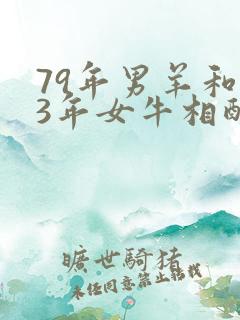 79年男羊和
3年女牛相配
旷世骑猪
未经同意禁止转载